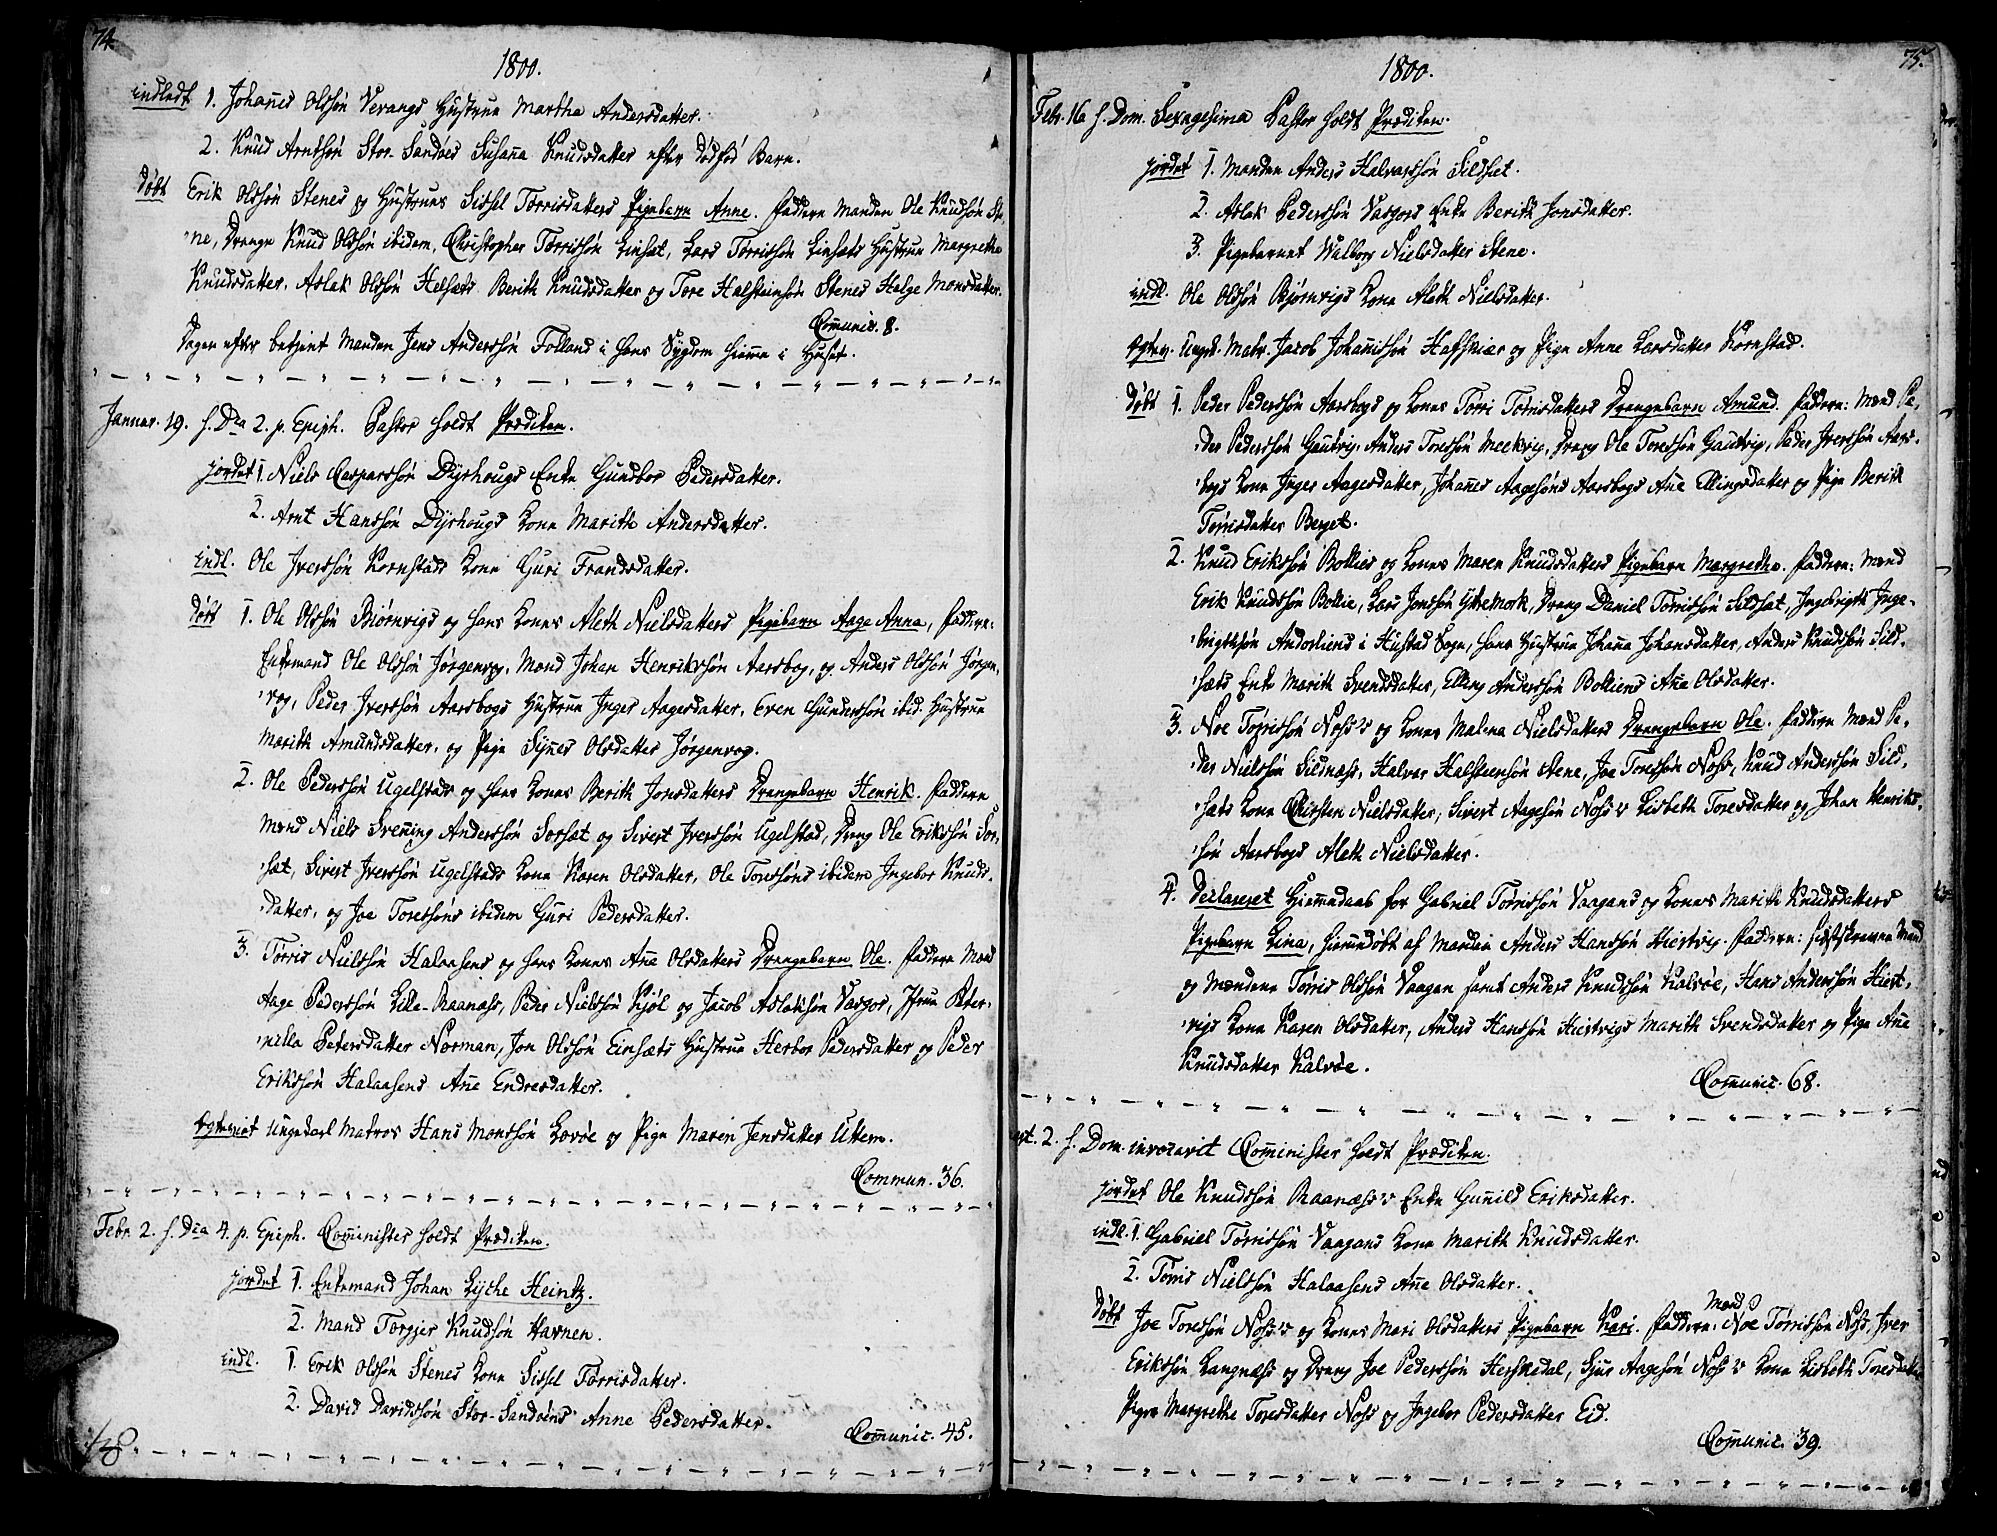 74.
1800.
indledt 1. Johañes Olssön Verangs Hustrue Martha Andersdatter.
2. Knud Arntsön Stor-Sandöes Susaña Knudsdatter efter dödföd Barn.
döbt Erik Olssön Stenes og Hustrues Sissel Torrisdatters Pigebarn Anne. Faddere Manden Ole Knudsön Ste-
ne, Dreng Knud Olssön ibidem, Christopher Torrissön Einsæt, Lars Torrissön Einsæts Hustrue Margrethe
Knudsdatter. Aslak Olssön Helsæts Berith Knudsdatter og Tore Halsteinsön Stenes Helge Monsdatter.
Comunic. 8.
Dagen efter betjent Manden Jens Anderssön Folland i hans Sygdom hieme i Huset.
Januar. 19. f. Dca 2. p. Epiph. Pastor holdt Prædiken.
jordet 1. Niels Casparssön Dyrhougs Enke Gundbor Pedersdatter.
2. Arnt Hanssön Dyrhougs Kone Marith Andersdatter.
indl. Ole Iverssön Kornstads Kone Guri Frandsdatter.
döbt 1. Ole Olssön Biörnvigs og hans Kones Aleth Nielsdatters Pigebarn Aage Anna, Faddere:
Enkemand Ole Olssön Jörgenvog, Mænd Johan Henrikssön Aarsbog, og Anders Olssön Jörgen-
vog, Peder Iverssön Aarsbogs Hustrue Inger Aagesdatter, Even Gunderssön ibid. Hustrue
Marith Amundsdatter, og Pige Synes Olsdatter Jörgenvog.
2. Ole Pederssön Ugelstads og hans Kones Berith Jonsdatters Drengebarn Henrik. Faddere
Mænd Niels Svening Anderssön Sorsæt og Sivert Iverssön Ugelstad, Dreng Ole Erikssön Sor-
sæt, Sivert Iverssön Ugelstads Kone Karen Olsdatter, Ole Toressöns ibidem Ingebor Knuds-
datter, og Joe Toressöns ibidem Guri Pedersdatter.
3. Torris Nielssön Halaasens og hans Kones Añe Olsdatters Drengebarn Ole. Faddere Mænd
Aage Pederssön Lille-Raanæss, Peder Nielssön Kjöl og Jacob Aslakssön Vasgor, Jfrue Peter-
nille Petersdatter Norman, Jon Olssön Einsæts Hustrue Herbor Pedersdatter og Peder
Erikssön Halaasens Añe Endresdatter.
Egteviet Ungekarl Matros Hans Monssön Lovöe og Pige Maren Jensdatter Uttem.
Commun. 36.
Febr. 2. f. Dca 4. p. Epiph. Cominister holdt Prædiken.
jordet 1. Enkemand Johan Lythe Heintz.
2. Mand Torgjer Knudsön Havnen.
indl. 1. Erik Olssön Stenes Kone Sissel Torrisdatter.
2. David Davidssön Stor-Sandöens Anne Pedersdatter.
Comunic. 45.
75.
1800.
Febr. 16 f. Dom. Sexagesima Pastor holdt Prædiken.
jordet 1. Manden Anders Halvorssön Sildset.
2. Aslak Pederssön Vasgors Enke Berith Jonsdatter.
3. Pigebarnet Walborg Nielsdatter Stene.
indl. Ole Olssön Björnvigs Kone Aleth Nielsdatter.
Egtev. Ungk. Matr. Jacob Johañissön Hafskiær og Pige Anne Larsdatter Kornstad.
döbt 1. Peder Pederssön Aarsbogs og Kones Torri Torrisdatters Drengebarn Amund. Faddere: Mænd Pe-
der Pederssön Gautvig, Anders Toressön Meekvig, Dreng Ole Toressön Gautvig, Peder Iverssön Aars-
bogs Kone Inger Aagesdatter, Johañes Aagesöns Aarsbogs Añe Ellingsdatter og Pige Berith
Torrisdatter Berget.
2. Knud Erikssön Bollies og Kones Maren Knudsdatters Pigebarn Margrethe. Faddere: Mænd
Erik Knudssön Bollie, Lars Jonssön Ytremork, Dreng Daniel Torrissön Sildsæt, Ingebrigth Inge-
brigthsön Andorliens i Hustad Sogn, hans Hustrue Johaña Johansdatter, Anders Knudssön Sild-
sæts Enke Marith Svendsdatter, Elling Anderssön Bolliens Añe Olsdatter.
3. Noe Torrissön Noss's og Kones Malena Nielsdatters Drengebarn Ole. Faddere Mænd Pe-
der Nielssön Sildnæss, Halvor Halsteensön Stene, Joe Toressön Noss, Knud Anderssön Sild-
sæts Kone Chirsten Nielsdatter, Sivert Aagesön Noss's Lisbeth Toresdatter og Johan Henriks-
sön Aarsbogs Aleth Nielsdatter.
4. Declareret Hiemedaab for Gabriel Torrissön Vaagans og Kones Marith Knudsdatters
Pigebarn Lina, hiemedöbt af Manden Anders Hanssön Hiertvig. Faddere: sidstskrevne Mand
og Mændene Torris Olssön Vaagan samt Anders Knudssön Kalvöe, Hans Anderssön Hiert-
vigs Kone Karen Olsdatter, Anders Hanssön Hiertvigs Marith Svendsdatter og Pige Añe
Knudsdatter Kalvöe.
Comunic. 68.
2. f. Dom. invocavit Cominister holdt Prædiken.
jordet Ole Knudssön Raanæss's Enke Guñild Eriksdatter.
indl. 1. Gabriel Torrissön Vaagans Kone Marith Knudsdatter.
2. Torris Nielssön Halaasens Añe Olsdatter.
döbt Joe Toressön Noss's og Kones Mari Olsdatters Pigebarn Kari. Faddere: Mænd Noe Torrissön Noss, Iver
Erikssön Langnæss og Dreng Joe Pederssön Herskedal, Siur Aagesön Noss's Kone Lisbeth Toresdatter
Piger Margrethe Toresdatter Noss og Ingebor Pedersdatter Eid.
Comunic. 39.